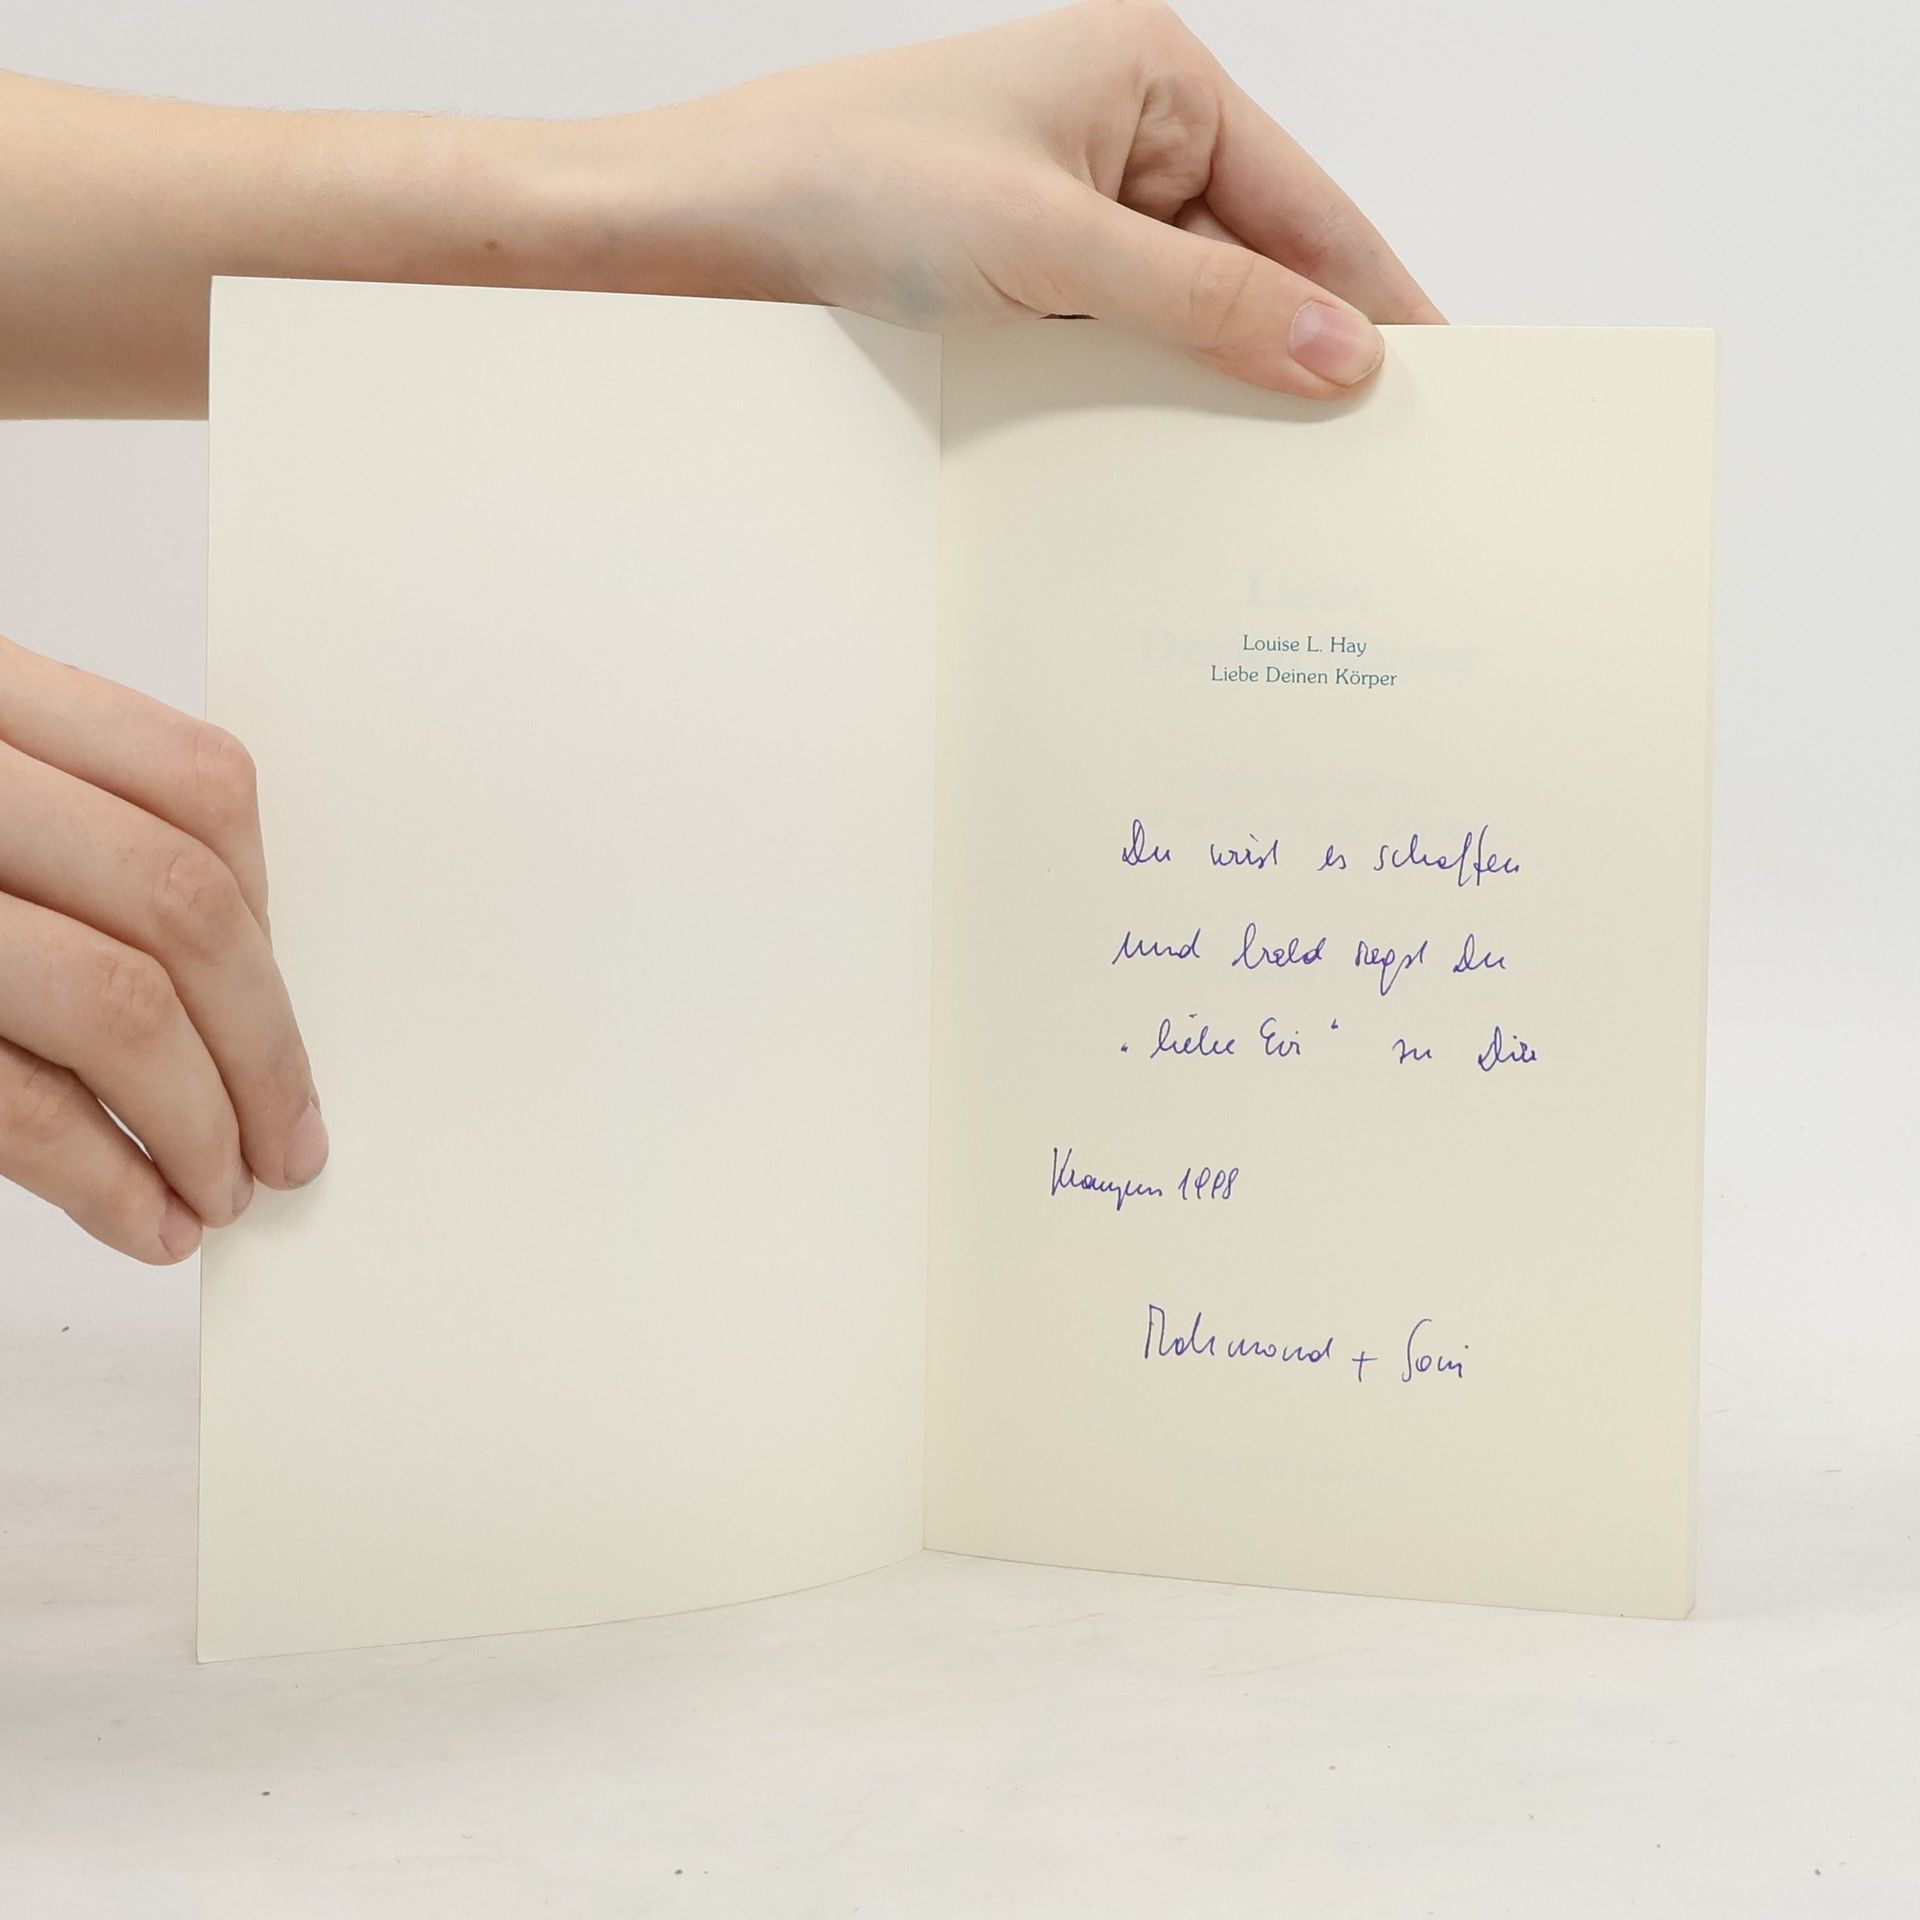 Louise L. Hay
Liebe Deinen Körper
Du wirst es schaffen
und bald sagst Du
"liebe Evi" zu Dir
1998
+ Soni